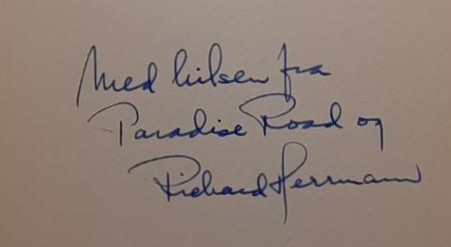 Med hilsen fra
Paradise Road og
Richard Herrmann